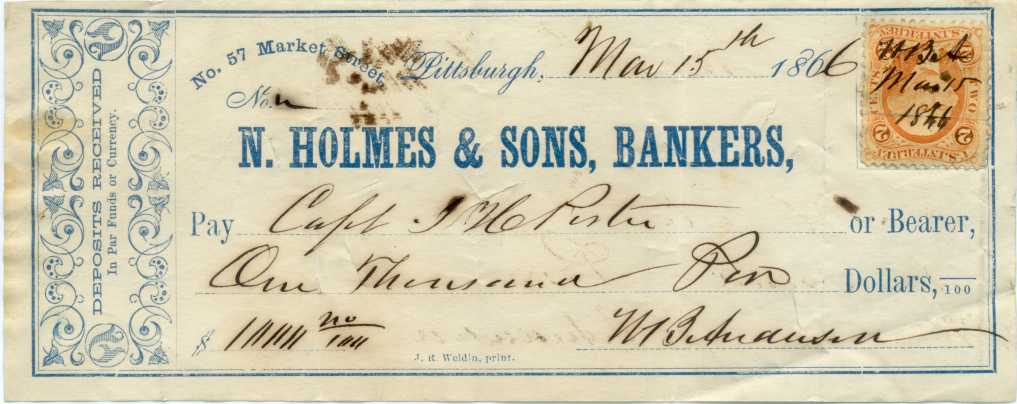 DEPOSITS RECEIVED
In Par Funds or Currency.
No. 57 Market Street
Pittsburgh, Mar 15th 1866
No.
N. HOLMES & SONS, BANKERS,
Pay Capt J H or Bearer,
One Thousand Dollars, 100
$ 1000 no/100 W B Anderson
J. R. Weldin, print.
W B A
Mar 15
1866
U.S. INTER. REV.
TWO CENTS
2 2